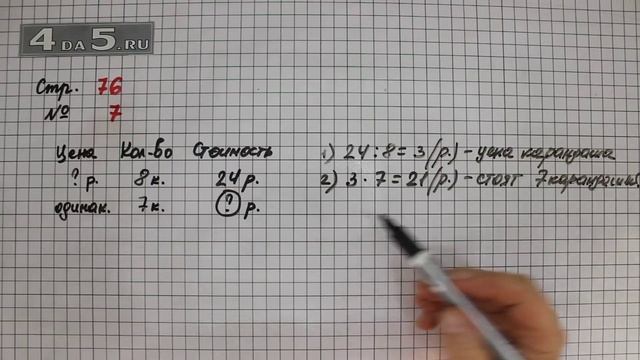 4 DA 5.RU
Стр. 76
№ 7
Цена Кол-во Стоимость
? р. 8 к. 24 р.
одинак. 7 к. ? р.
1) 24 : 8 = 3 (р.) - цена карандаша
2) 3 · 7 = 21 (р.) - стоят 7 карандашей.